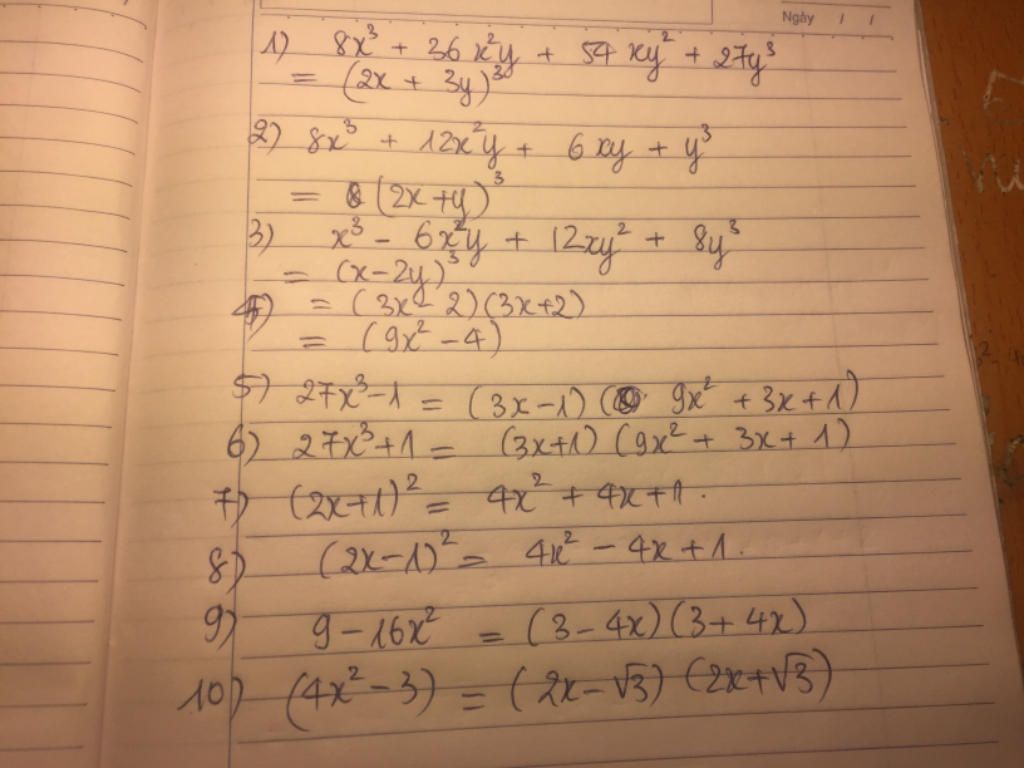 Ngày / /
1) 8x³ + 36x²y + 54xy² + 27y³
= (2x + 3y)³
2) 8x³ + 12x²y + 6xy + y³
= (2x+y)³
3) x³ - 6x²y + 12xy² + 8y³
= (x-2y)³
4) = (3x-2)(3x+2)
= (9x²-4)
5) 27x³-1 = (3x-1)(9x²+3x+1)
6) 27x³+1 = (3x+1)(9x²+3x+1)
7) (2x+1)² = 4x²+4x+1.
8) (2x-1)² = 4x²-4x+1.
9) 9-16x² = (3-4x)(3+4x)
10) (4x²-3) = (2x-√3)(2x+√3)